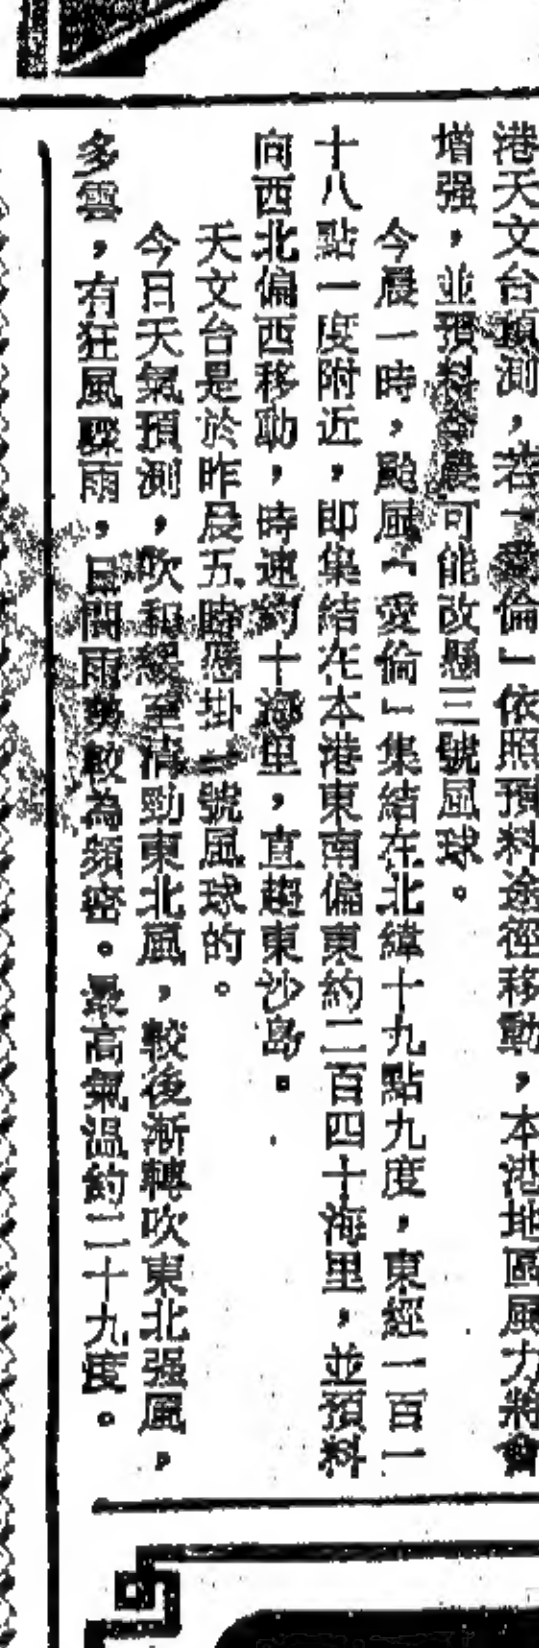 港天文台預測，若「愛倫」依照預料途徑移動，本港地區風力將會
增强，並預料今晨可能改懸三號風球。
今晨一時，颱風「愛倫」集結在北緯十九點九度，東經一百一
十八點一度附近，即集結在本港東南偏東約二百四十海里，並預料
向西北偏西移動，時速約十海里，直趨東沙島。
天文台是於昨晨五時懸掛號風球的。
今日天氣預測，吹和緩至清勁東北風，較後漸轉吹東北强風，
多雲，有狂風驟雨，日間雨勢較為頻密。最高氣温約二十九度。